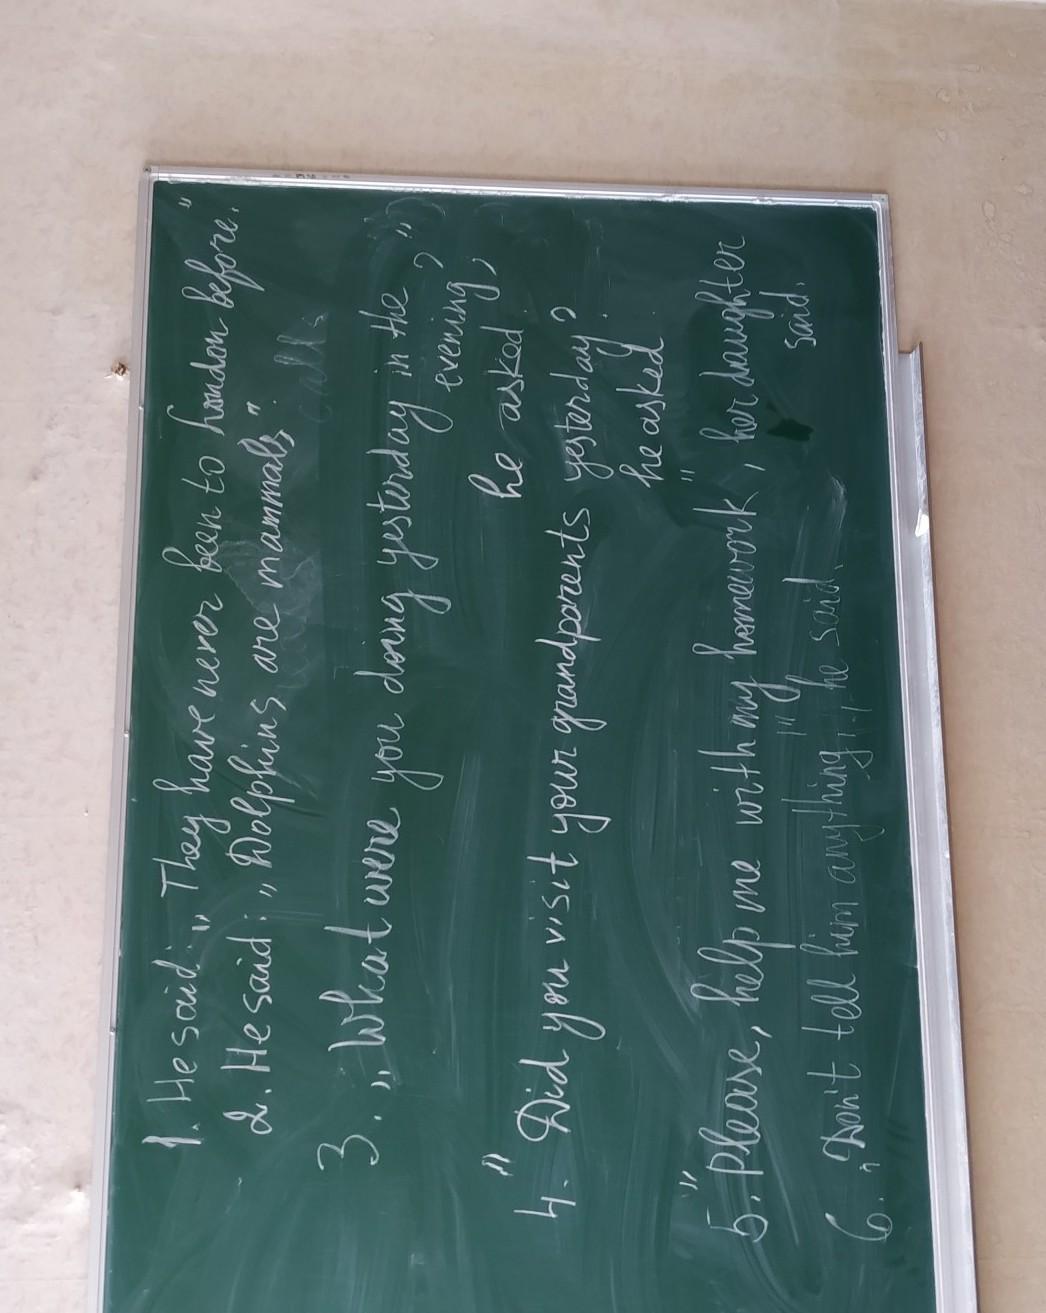 1. He said: „They have never been to London before."
2. He said: „Dolphins are mammals".
3. „What were you doing yesterday in the
evening?",
he asked
4. "Did you visit your grandparents yesterday?
he asked
5. "Please, help me with my homework", her daughter
said.
6. „Don't tell him anything!", he said.